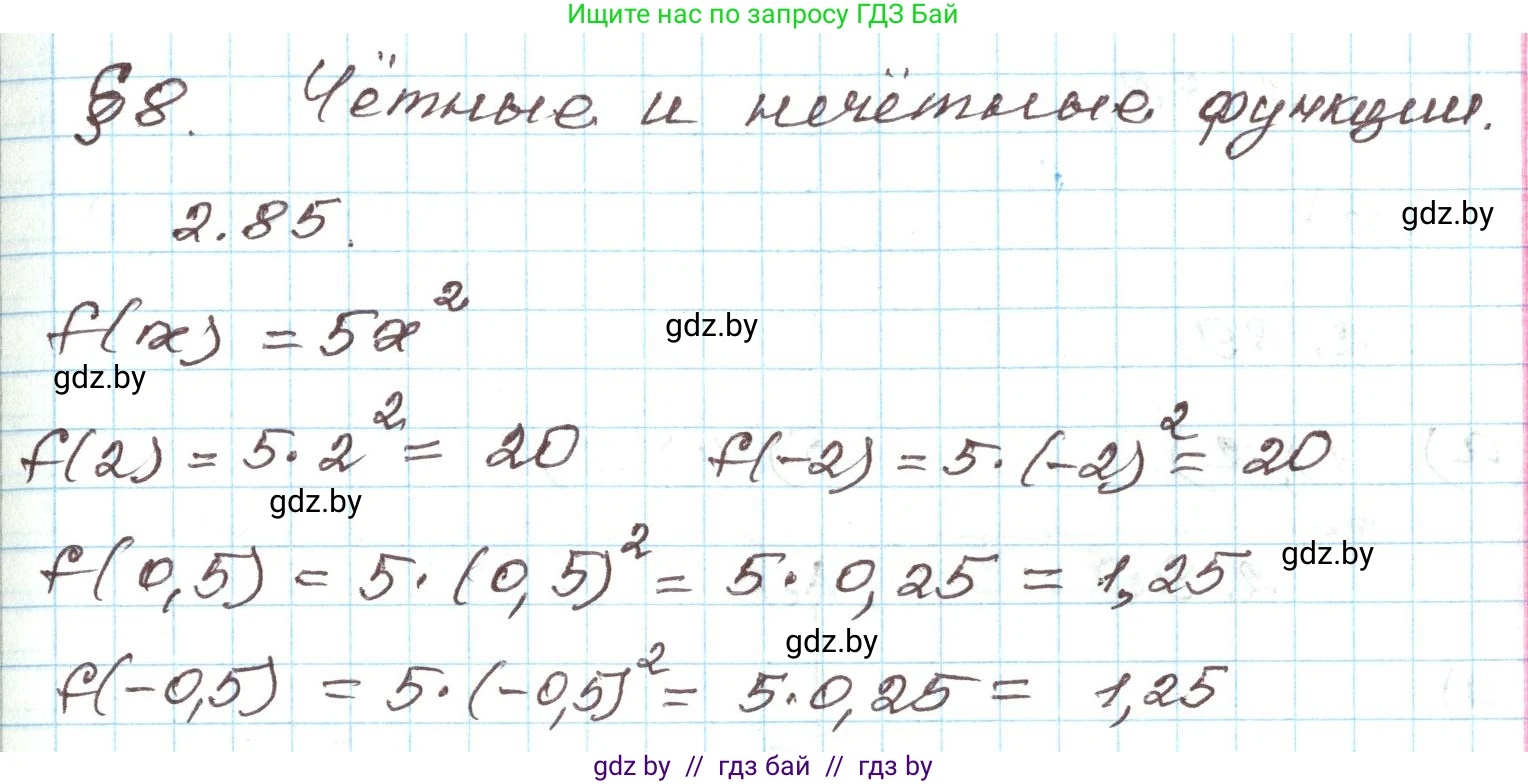 Ищите нас по запросу ГДЗ Бай
§8. Чётные и нечётные функции.
2.85.
gdz.by
f(x) = 5x²
gdz.by
gdz.by
f(2) = 5·2² = 20 f(-2) = 5·(-2)² = 20
gdz.by
f(0,5) = 5·(0,5)² = 5·0,25 = 1,25
gdz.by
gdz.by
f(-0,5) = 5·(-0,5)² = 5·0,25 = 1,25
gdz by // гдз бай // гдз by